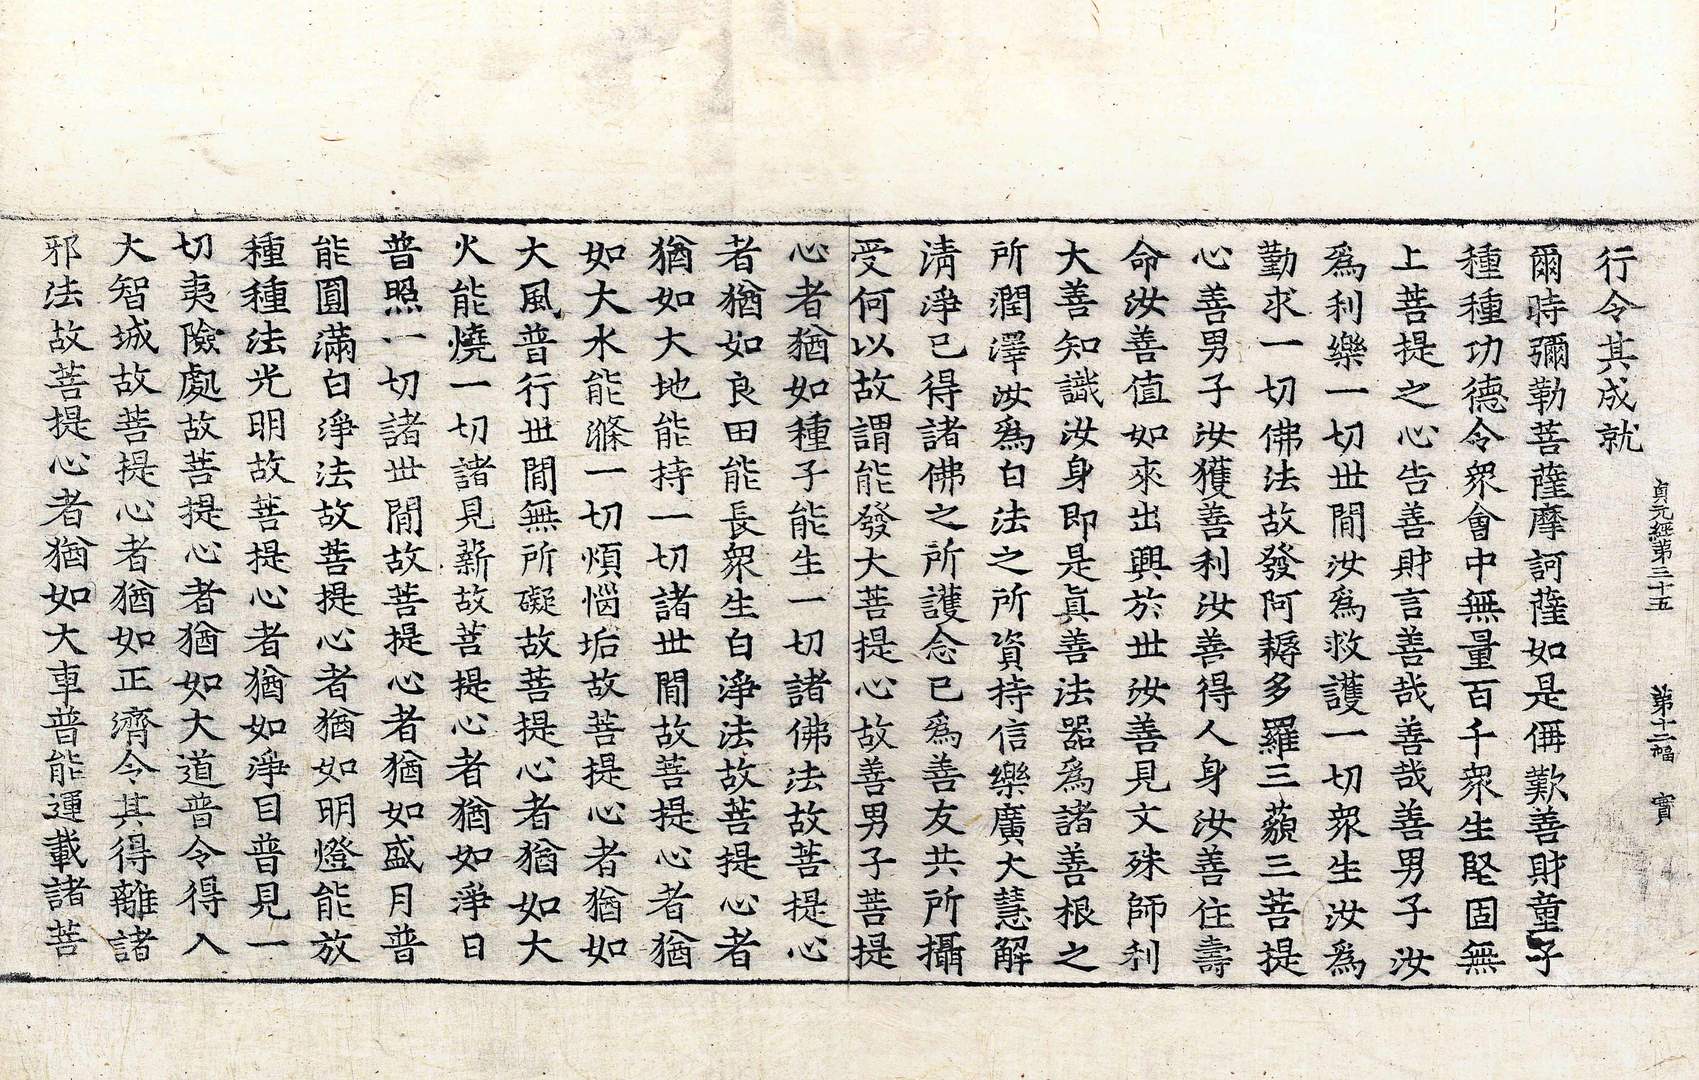 貞元經第三十五　第十二幅　實
行令其成就
爾時彌勒菩薩摩訶薩如是偁歎善財童子
種種功德令衆會中無量百千衆生堅固無
上菩提之心告善財言善哉善哉善男子汝
爲利樂一切世間汝爲救護一切衆生汝爲
勤求一切佛法故發阿耨多羅三藐三菩提
心善男子汝獲善利汝善得人身汝善住壽
命汝善值如來出興於世汝善見文殊師利
大善知識汝身即是眞善法器爲諸善根之
所潤澤汝爲白法之所資持信樂廣大慧解
淸淨已得諸佛之所護念已爲善友共所攝
受何以故謂能發大菩提心故善男子菩提
心者猶如種子能生一切諸佛法故菩提心
者猶如良田能長衆生白淨法故菩提心者
猶如大地能持一切諸世間故菩提心者猶
如大水能滌一切煩惱垢故菩提心者猶如
大風普行世間無所礙故菩提心者猶如大
火能燒一切諸見薪故菩提心者猶如淨日
普照一切諸世間故菩提心者猶如盛月普
能圓滿白淨法故菩提心者猶如明燈能放
種種法光明故菩提心者猶如淨目普見一
切夷險處故菩提心者猶如大道普令得入
大智城故菩提心者猶如正濟令其得離諸
邪法故菩提心者猶如大車普能運載諸菩